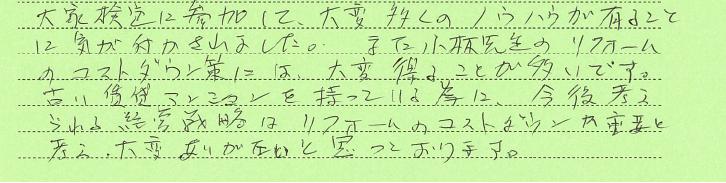 大家検定に参加して、大変多くのノウハウが有ること
に気が付かされました。また小林先生のリフォーム
のコストダウン策には、大変得ることが多いです。
古い賃貸マンションを持っている為に、今後考え
られる経営戦略はリフォームのコストダウンが重要と
考え、大変ありがたいと思っております。